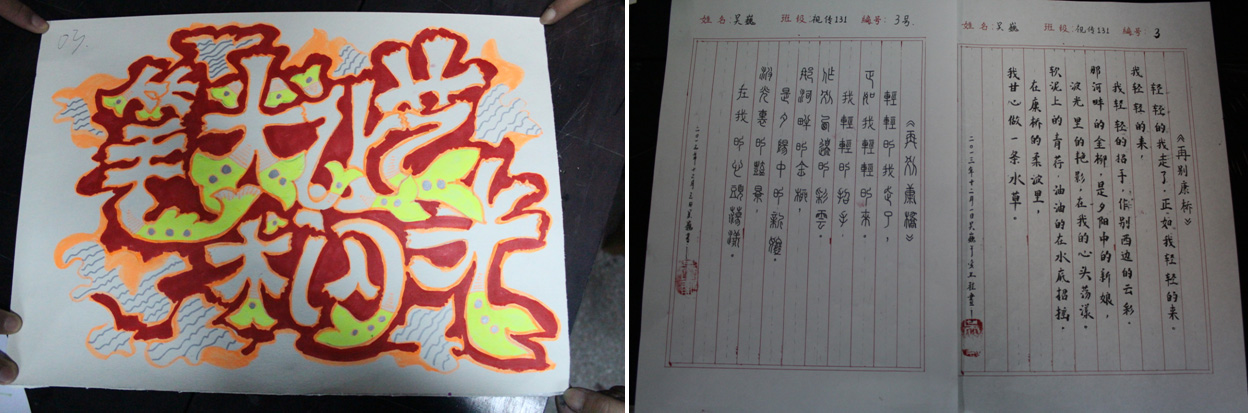 03.
姓名:吴巍 班级:视传131 编号:3号.
《再別康橋》
輕輕的我走了,
正如我輕輕的來。
我輕輕的招手,
作別西邊的彩雲。
那河畔的金柳,
是夕陽中的新娘。
波光裏的豔影,
在我的心頭蕩漾。
姓名:吴巍 班级:视传131 编号:3
《再别康桥》
轻轻的我走了,正如我轻轻的来。
我轻轻的来,
我轻轻的招手,作别西边的云彩。
那河畔的金柳,是夕阳中的新娘,
波光里的艳影,在我的心头荡漾。
软泥上的青荇,油油的在水底招摇。
在康桥的柔波里,
我甘心做一条水草。